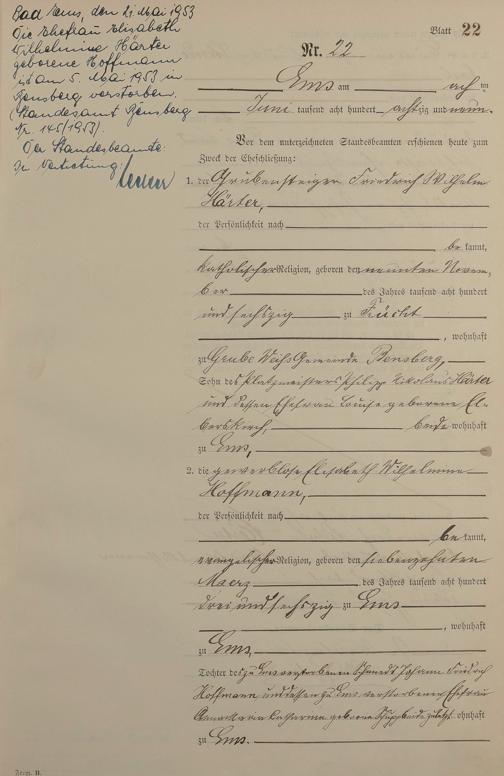 Bad Ems, den 21. Mai 1953
Die Ehefrau Elisabeth
Wilhelmine Härter
geborene Hoffmann
ist am 5. Mai 1953 in
Bensberg verstorben.
(Standesamt Bensberg
Nr. 145/1953).
Der Standesbeamte:
In Vertretung:
Blatt 22
Nr. 22
Ems am acht ten
Juni tausend acht hundert achtzig und neun.
Vor dem unterzeichneten Standesbeamten erschienen heute zum
Zweck der Eheschließung:
1. der Grubensteiger Friedrich Wilhelm
Härter,
der Persönlichkeit nach
be kannt,
katholischer Religion, geboren den neunten Novem-
ber des Jahres tausend acht hundert
und sechszig zu Frücht
, wohnhaft
zu Grube Weiss Gemeinde Bensberg,
Sohn des Platzmeisters Philipp Nikolaus Härter
und dessen Ehefrau Louise geborene El-
berskirch, beide wohnhaft
zu Ems,
2. die gewerblose Elisabeth Wilhelmine
Hoffmann,
der Persönlichkeit nach
be kannt,
evangelischer Religion, geboren den siebenzehnten
Maerz des Jahres tausend acht hundert
drei und sechszig zu Ems
, wohnhaft
zu Ems,
Tochter des zu Ems verstorbenen Schmiedt Johann Friedrich
Hoffmann und dessen zu Ems verstorbener Ehefrau
Katharina geborene Schupp beide zuletzt wohnhaft
zu Ems.